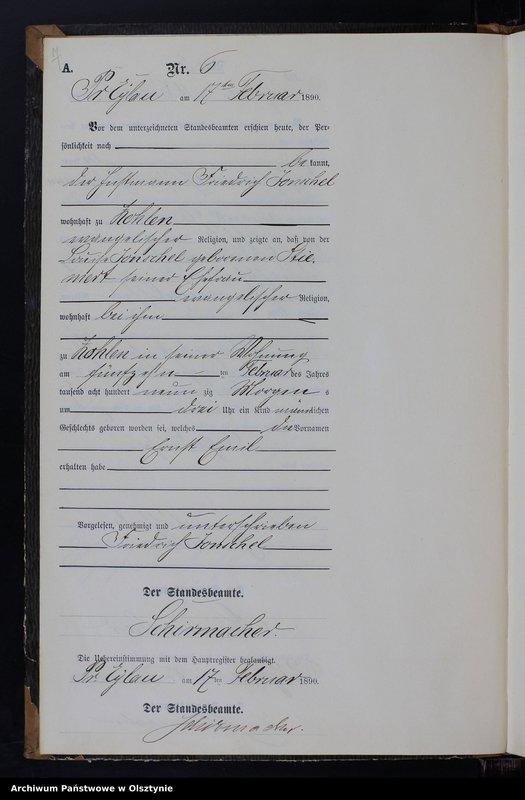 A.
Nr. 6
Pr. Eylau am 17ten Februar 1890.
Vor dem unterzeichneten Standesbeamten erschien heute, der Per-
sönlichkeit nach
be kannt,
der Instmann Friedrich Jonschel
wohnhaft zu Kohlen
evangelischer Religion, und zeigte an, daß von der
Louise Jonschel geborenen
seiner Ehefrau
evangelischer Religion,
wohnhaft bei ihm
zu Kohlen in seiner Wohnung
am fünfzehn ten Februar des Jahres
tausend acht hundert neun zig Morgen s
um drei Uhr ein Kind männlichen
Geschlechts geboren worden sei, welches die Vornamen
Ernst Emil
erhalten habe
Vorgelesen, genehmigt und unterschrieben
Friedrich Jonschel
Der Standesbeamte.
Schirmacher.
Die Uebereinstimmung mit dem Hauptregister beglaubigt.
Pr. Eylau am 17ten Februar 1890.
Der Standesbeamte.
Schirmacher.
Archiwum Państwowe w Olsztynie